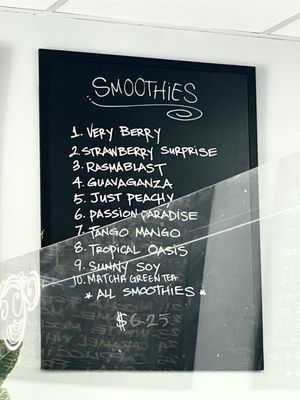 SMOOTHIES
1. VERY BERRY
2 STRAWBERRY SURPRISE
3. RASMABLAST
4. GUAVAGANZA
5. JUST PEACHY
6. PASSION PARADISE
7. TANGO MANGO
8. TROPICAL OASIS
9. SUNNY SOY
10. MATCHA GREEN TEA
* ALL SMOOTHIES *
$6.25